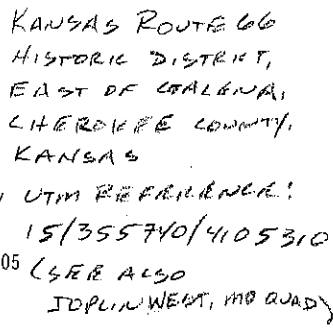 KANSAS ROUTE 66
HISTORIC DISTRICT,
EAST OF GALENA,
CHEROKEE COUNTY,
KANSAS
UTM REFERENCE:
15/355740/4105310
05 (SEE ALSO
JOPLIN WEST, MO QUAD)